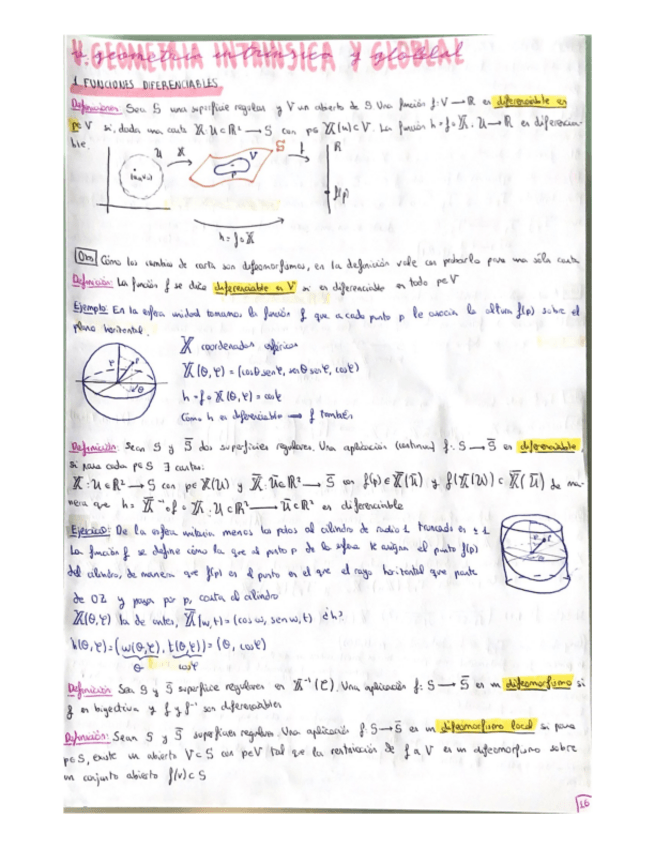 4. GEOMETRIA INTRINSICA Y GLOBAL
1. FUNCIONES DIFERENCIABLES
Definiciones: Sea S una superficie regular y V un abierto de S. Una función f: V → R es diferenciable en
p∈V si, dada una carta X: U⊂R² → S con p∈X(u)⊂V. La función h=f∘X: U→R es diferencia-
ble.
U X S V f R
p
f(p)
h = f∘X
Obs Cómo los cambios de carta son difeomorfismos, en la definición vale con probarlo para una sóla carta
Definición: La función f se dice diferenciable en V si es diferenciable en todo p∈V
Ejemplo: En la esfera unidad tomamos la función f que a cada punto p le asocia la altura f(p) sobre el
plano horizontal.
X coordenadas esféricas
X(θ,φ) = (cosθ senφ, senθ senφ, cosφ)
h = f∘X(θ,φ) = cosφ
Cómo h es diferenciable → f también
Definición: Sean S y S̄ dos superficies regulares. Una aplicación (continua) f: S → S̄ es diferenciable
si para cada p∈S ∃ cartas:
X: U⊂R² → S con p∈X(U) y X̄: Ū⊂R² → S̄ con f(p)∈X̄(Ū) y f(X(U)) ⊂ X̄(Ū) de ma-
nera que h = X̄⁻¹∘f∘X: U⊂R² → Ū⊂R² es diferenciable
Ejercicio: De la esfera unitaria menos los polos al cilindro de radio 1 truncado en ±1
La función f se define cómo la que al punto p de la esfera le asigna el punto f(p)
del cilindro, de manera que f(p) es el punto en el que el rayo horizontal que parte
de OZ y pasa por p, corta al cilindro
X(θ,φ) la de antes, X̄(w,t) = (cos w, sen w, t) ¿h?
h(θ,φ) = (w(θ,φ), t(θ,φ)) = (θ, cosφ)
θ cosφ
Definición: Sea S y S̄ superficies regulares en X⁻¹(C). Una aplicación f: S → S̄ es un difeomorfismo si
f es biyectiva y f y f⁻¹ son diferenciables
Definición: Sean S y S̄ superficies regulares. Una aplicación f: S → S̄ es un difeomorfismo local si para
p∈S, existe un abierto V⊂S con p∈V tal que la restricción de f a V es un difeomorfismo sobre
un conjunto abierto f(v)⊂S
16